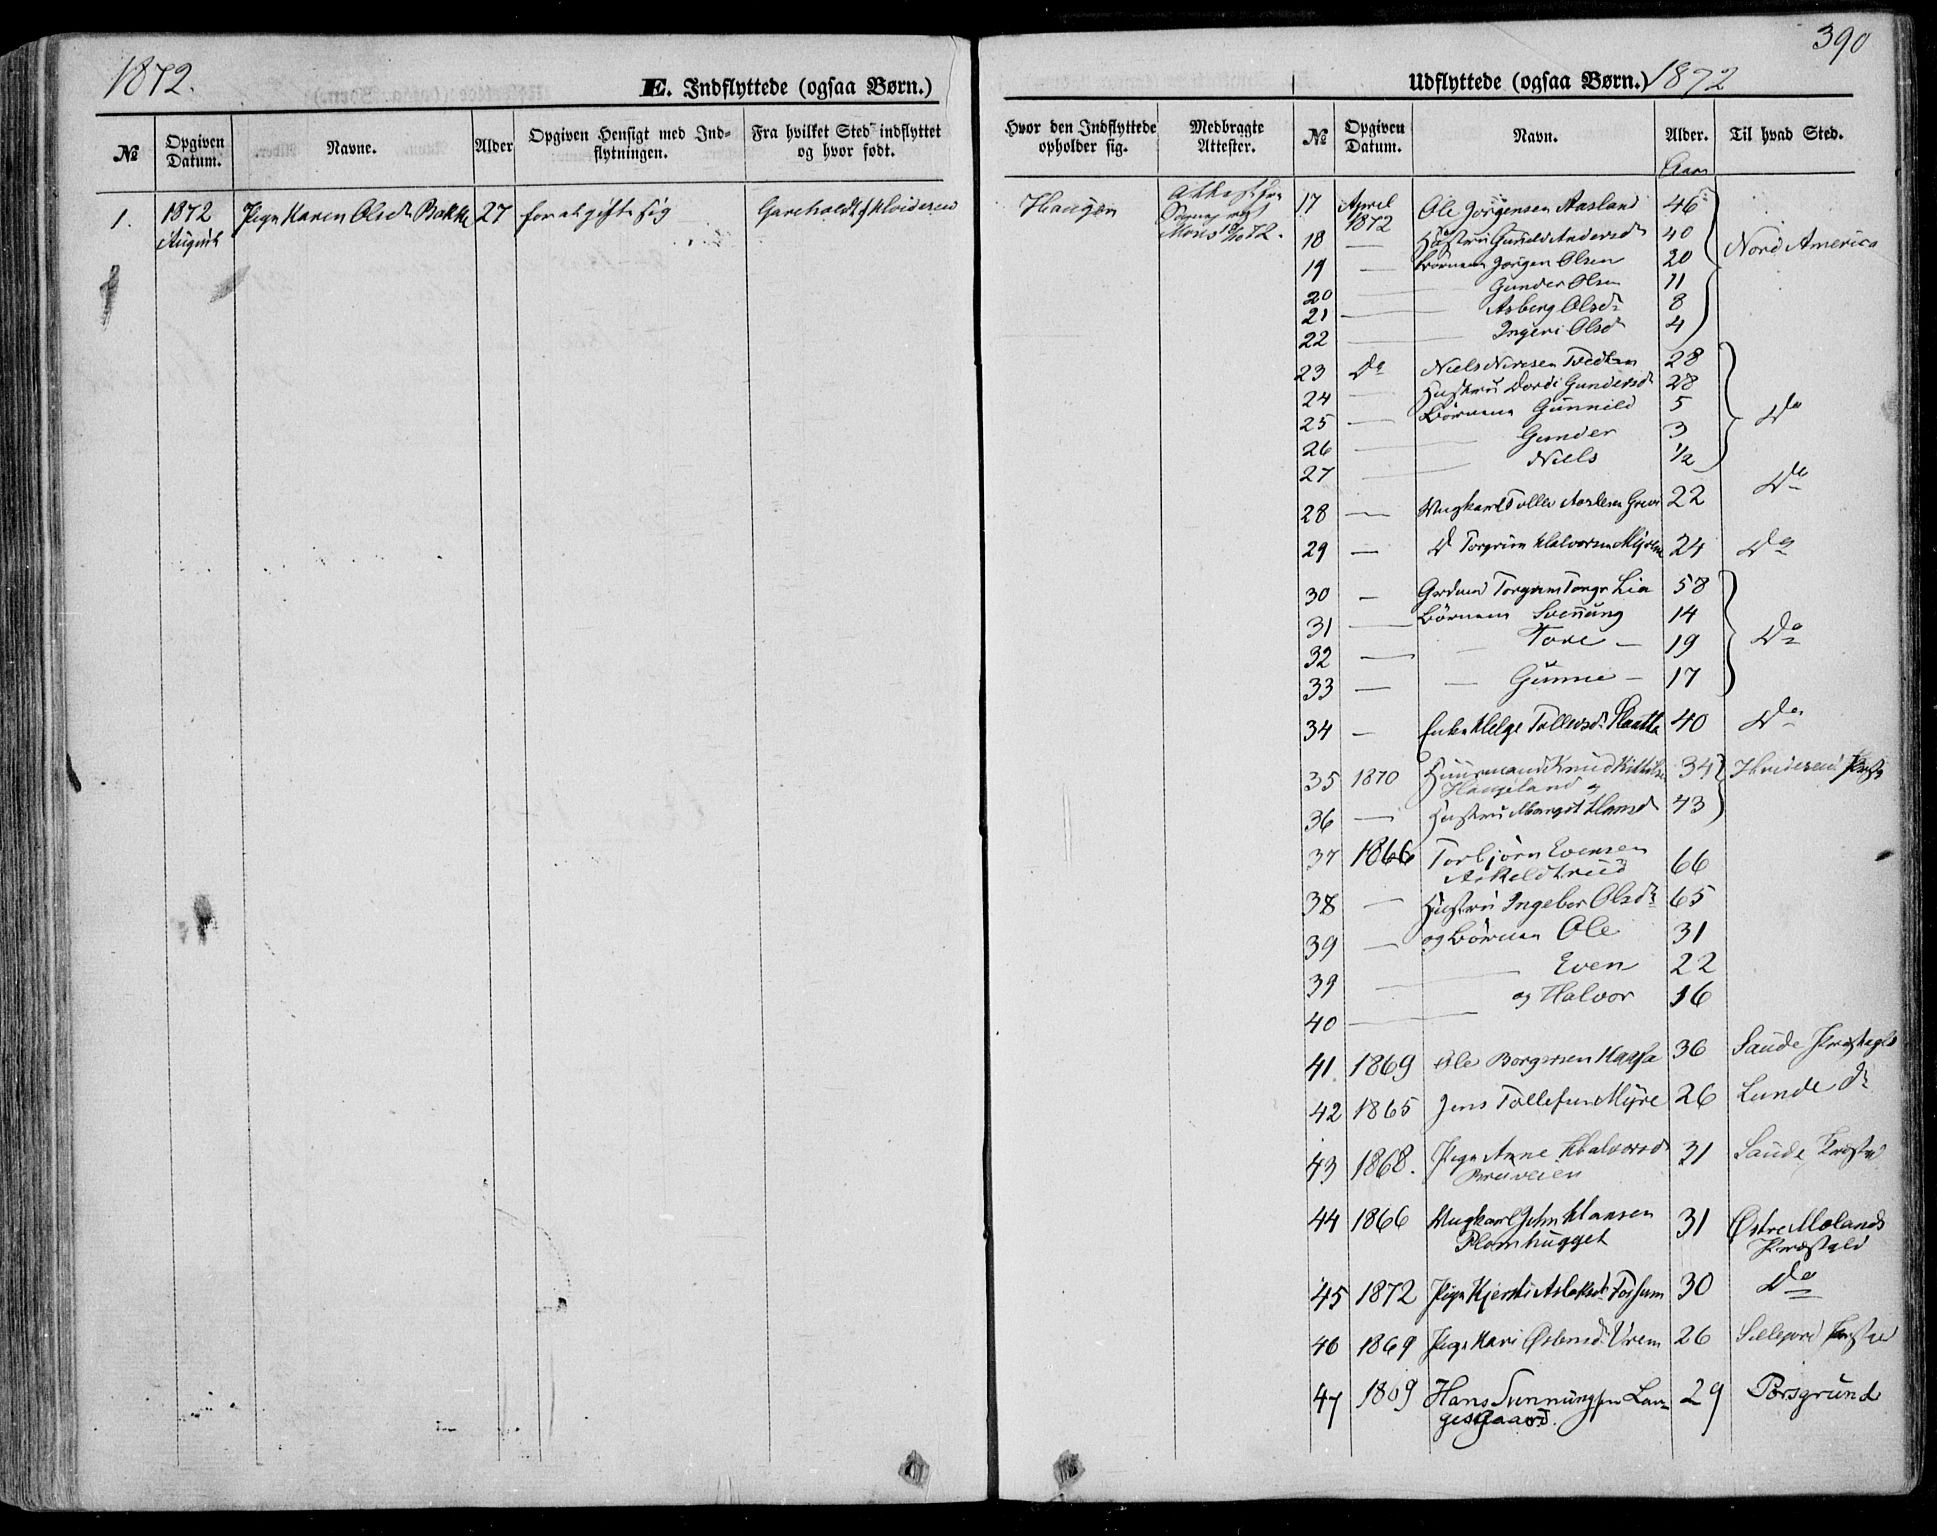 390
1872.
E. Indflyttede (ogsaa Børn.)
Udflyttede (ogsaa Børn.) 1872
№ Opgiven Datum. Navne. Alder Opgiven Hensigt med Ind=flytningen. Fra hvilket Sted indflyttet og hvor født.
Hvor den Indflyttede opholder sig. Medbragte Attester. № Opgiven Datum. Navn. Alder. Til hvad Sted.
Aar
1. 1872 August Pige Karen Olsdr Bakke 27 for at gifte sig Hvideseid
Haugen Attest fra
17 April 1872 Ole Jørgensen Aasland 46
18 — Hustru Gunild Andersdr 40 Nord America
19 — Børnene Jørgen Olsen 20
20 — Gunder Olsen 11
21 — Asberg Olsdr 8
22 — Ingeri Olsd 4
23 Do Niels Nirisen 28
24 — Hustru Dordi Gundersdr 28
25 — Børnene Gunnild 5 Do
26 — Gunder 3
27 — Niels 1/2
28 — Ungkarl Tollev Aaslesen 22 Do
29 — Do Torgrim Halvorsen Myren 24 Do
30 — Lia 58
31 — Børnene Svennung 14
32 — Tore — 19 Do
33 — — Gunne — 17
34 — Enke Helge Tollevsdr 40 Do
35 1870 Huusmand Knud Kittilsen Haugeland og 34 Hvideseid
36 — Hustru Margit Hansd 43
37 1866 Torbjørn Evensen Askeldtreid 66
38 — Hustru Ingebor Olsdr 65
39 — og Børnene Ole 31
39 — — Even 22
40 — og Halvor 16
41. 1869 Ole Borgersen Haafa 36 Saude
42 1865 Jens Tollefsen Myre 26 Lunde Do
43 1868. Pige Anne Halvorsdr 31 Saude
44 1866 Ungkarl John Hansen Plomhugget 31 Østre Molands Præsteld
45 1872 Pige Kjersti Aslaksdr Fossum 30 Do
46 1869 Pige Kari Østensdr Vreim 26
47 1869 Hans Svennungsen Langesgaard. 29 Porsgrund